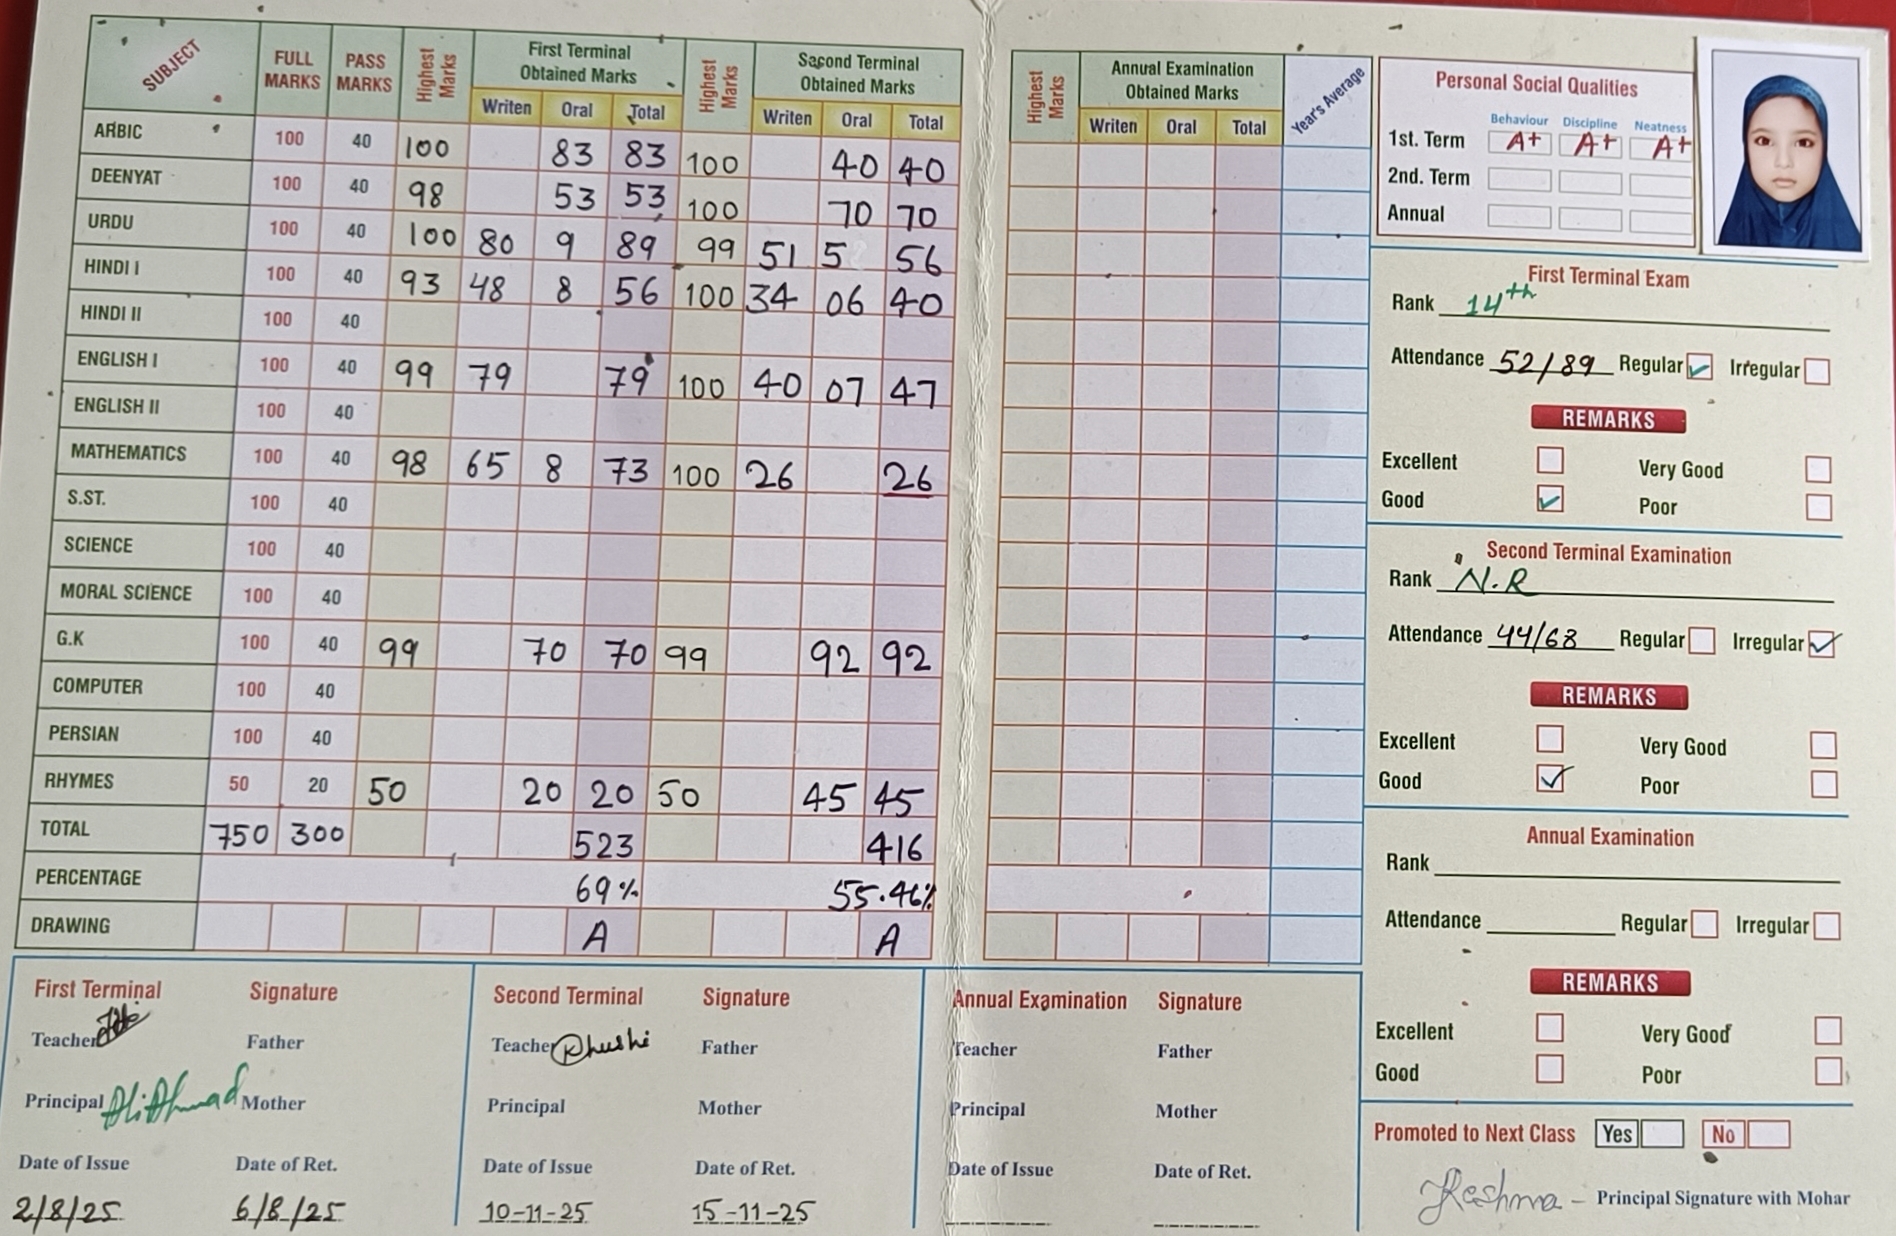 SUBJECT FULL MARKS PASS MARKS Highest Marks First Terminal Obtained Marks Highest Marks Second Terminal Obtained Marks
Writen Oral Total Writen Oral Total
ARBIC 100 40 100 83 83 100 40 40
DEENYAT 100 40 98 53 53 100 70 70
URDU 100 40 100 80 9 89 99 51 5 56
HINDI I 100 40 93 48 8 56 100 34 06 40
HINDI II 100 40
ENGLISH I 100 40 99 79 79 100 40 07 47
ENGLISH II 100 40
MATHEMATICS 100 40 98 65 8 73 100 26 26
S.ST. 100 40
SCIENCE 100 40
MORAL SCIENCE 100 40
G.K 100 40 99 70 70 99 92 92
COMPUTER 100 40
PERSIAN 100 40
RHYMES 50 20 50 20 20 50 45 45
TOTAL 750 300 523 416
PERCENTAGE 69% 55.46%
DRAWING A A
First Terminal Signature
Teacher Father
Principal Ali Ahmad Mother
Date of Issue Date of Ret.
2/8/25 6/8/25
Second Terminal Signature
Teacher Khushi Father
Principal Mother
Date of Issue Date of Ret.
10-11-25 15-11-25
Highest Marks Annual Examination Obtained Marks Year's Average
Writen Oral Total
Annual Examination Signature
Teacher Father
Principal Mother
Date of Issue Date of Ret.
Personal Social Qualities
Behaviour Discipline Neatness
1st. Term A+ A+ A+
2nd. Term
Annual
First Terminal Exam
Rank 14th
Attendance 52/89 Regular Irregular
REMARKS
Excellent Very Good
Good Poor
Second Terminal Examination
Rank N.R
Attendance 44/68 Regular Irregular
REMARKS
Excellent Very Good
Good Poor
Annual Examination
Rank
Attendance Regular Irregular
REMARKS
Excellent Very Good
Good Poor
Promoted to Next Class Yes No
Reshma - Principal Signature with Mohar